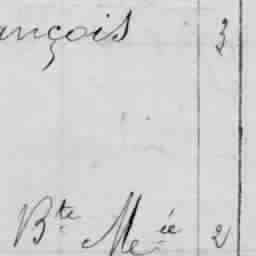 ançois 3
Bte Meie 2